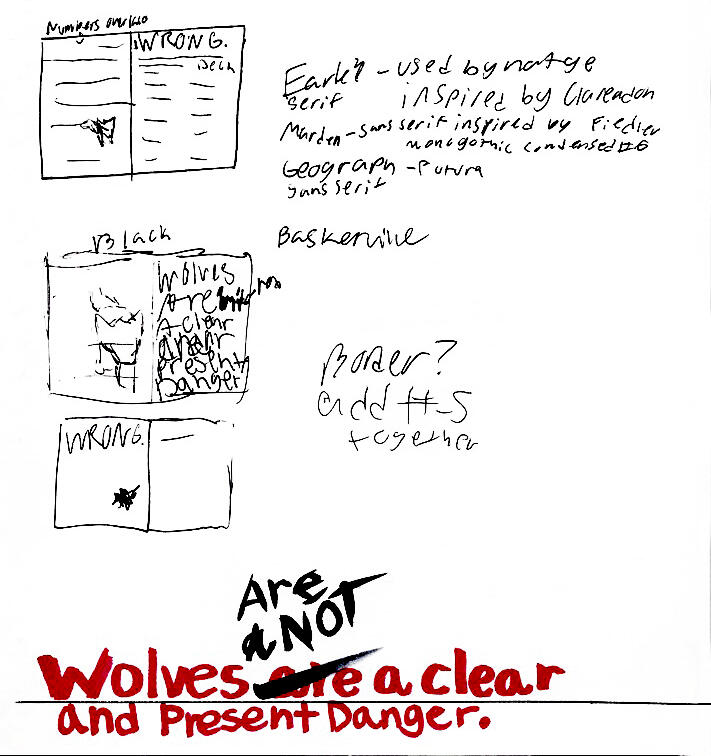 Numbers overlap
WRONG.
Deck
Earle's – used by natge
serif inspired by Clarendon
Marden – sans serif inspired by Fiedler
monogothic condensed #6
Geograph – Futura
sans serif
Black
Baskerville
Wolves
are
a clear
and
present
Danger
Border?
add #-S
together
WRONG.
Are
NOT
Wolves are a clear
and Present Danger.